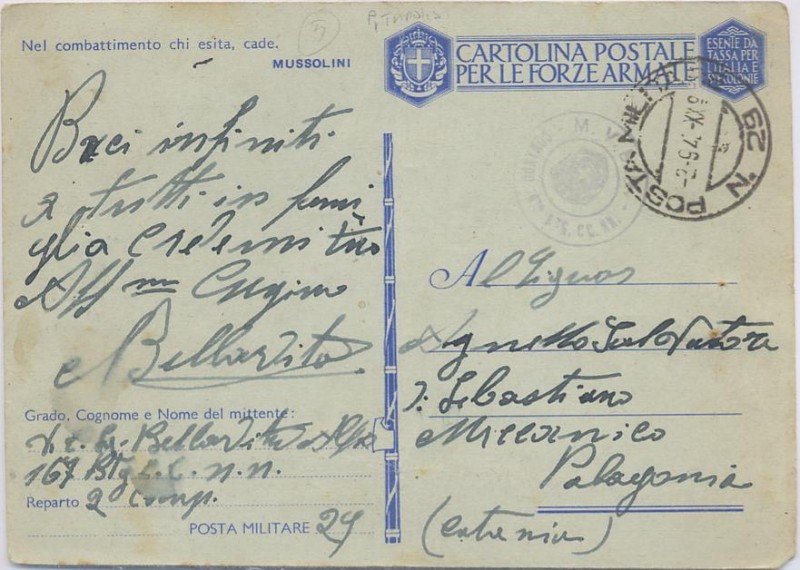 Nel combattimento chi esita, cade.
MUSSOLINI
5
CARTOLINA POSTALE
PER LE FORZE ARMATE
ESENTE DA
TASSA PER
L'ITALIA E
SUE COLONIE
POSTA MILITARE N. 29
M. V. S. N.
Baci infiniti
a tutti in fami
glia credemi tuo
Aff mo Cugino
Bellavito
Al Signor
Agnello Salvatore
di Sebastiano
Meccanico
Palagonia
(Catania)
Grado, Cognome e Nome del mittente:
Bellavito
167 Btg.
Reparto 2 Comp.
POSTA MILITARE 29